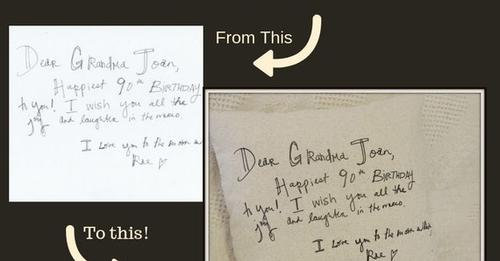 From This
Dear Grandma Joan,
Happiest 90th BIRTHDAY
to you! I wish you all the
joy and laughter in the
I love you to the moon
Rae
To this!
Dear Grandma Joan,
Happiest 90th BIRTHDAY
to you! I wish you all the
joy and laughter in the
I love you to the moon
Rae